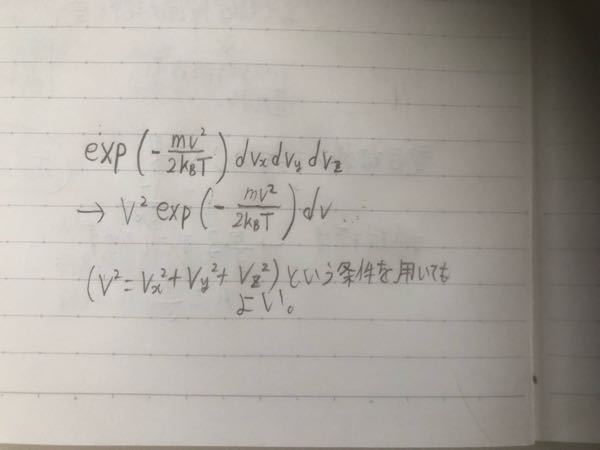 exp(-mv²/2k_BT) dv_x dv_y dv_z
→ v² exp(-mv²/2k_BT) dv
(v²=v_x²+v_y²+v_z²)という条件を用いても
よい。